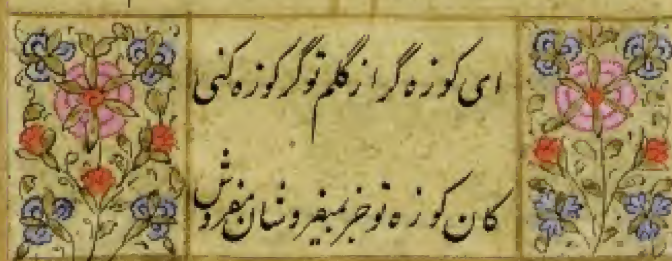 ای کوزه گر از گلم تو گر کوزه کنی
کان کوزه تو جز بمیفروشان مفروش